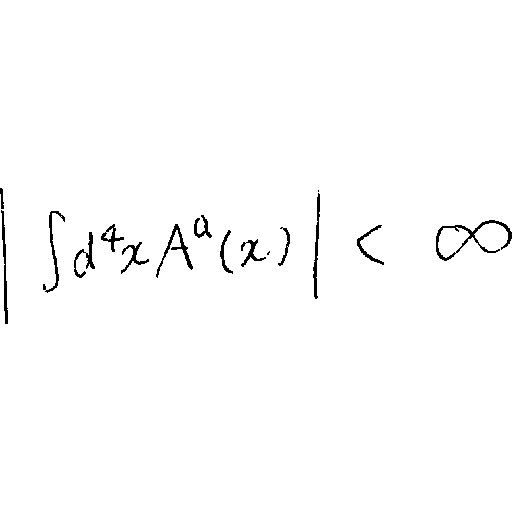 | ∫d⁴x Aᵃ(x) | < ∞